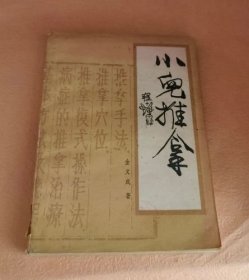 小儿推拿
推拿手法
推拿穴位
推拿复式操作法
病症推拿治疗
金义成 著